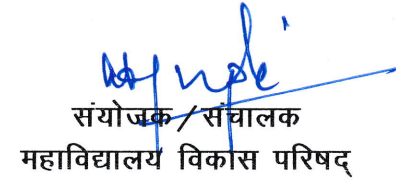 संयोजक / संचालक
महाविद्यालय विकास परिषद्